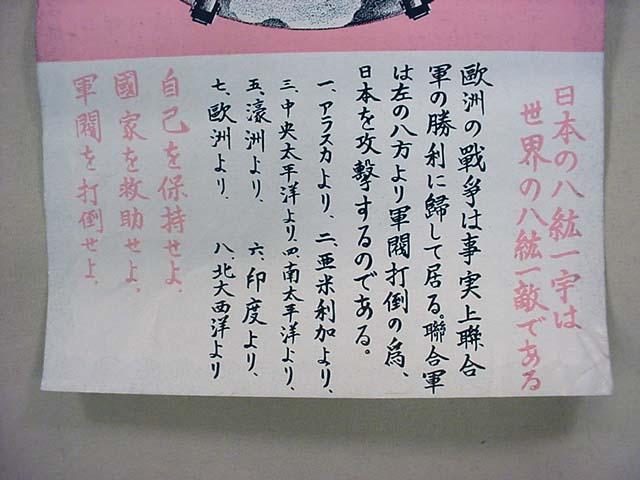 日本の八紘一宇は
世界の八紘一敵である
歐洲の戰爭は事実上聯合
軍の勝利に歸して居る。聯合軍
は左の八方より軍閥打倒の爲、
日本を攻擊するのである。
一、アラスカより、二、亜米利加より、
三、中央太平洋より、四、南太平洋より、
五、濠洲より、六、印度より、
七、歐洲より、八、北大西洋より
自己を保持せよ、
國家を救助せよ、
軍閥を打倒せよ、